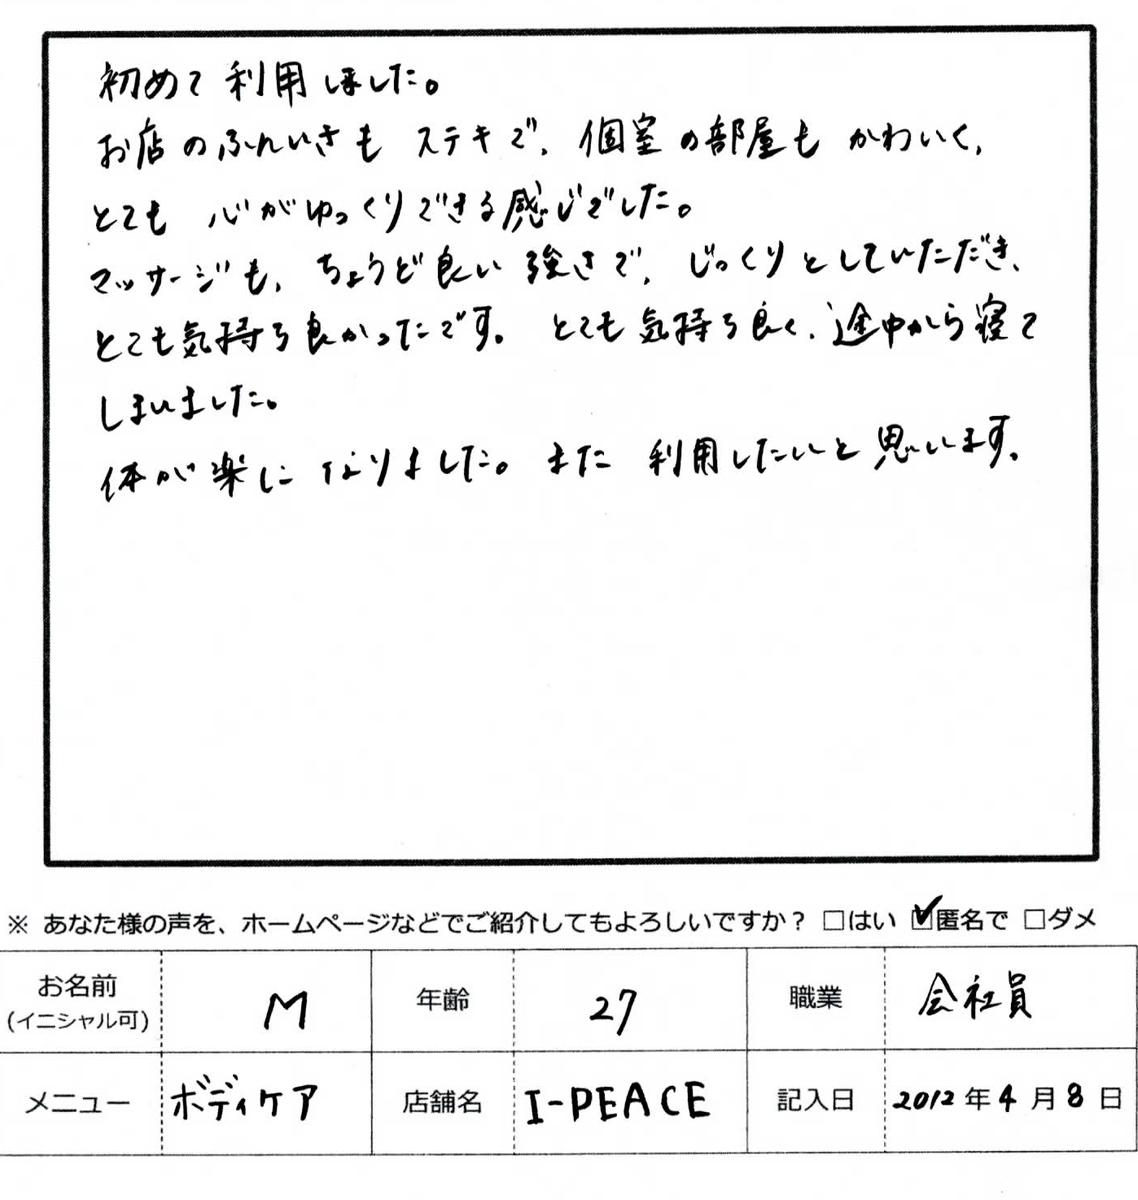 初めて利用しました。
お店のふんいきもステキで、個室の部屋もかわいく、
とても心がゆっくりできる感じでした。
マッサージも、ちょうど良い強さで、じっくりとしていただき、
とても気持ち良かったです。とても気持ち良く、途中から寝て
しまいました。
体が楽になりました。また利用したいと思います。
※ あなた様の声を、ホームページなどでご紹介してもよろしいですか？ □はい ☑匿名で □ダメ
お名前 M 年齢 27 職業 会社員
(イニシャル可)
メニュー ボディケア 店舗名 I-PEACE 記入日 2012年4月8日